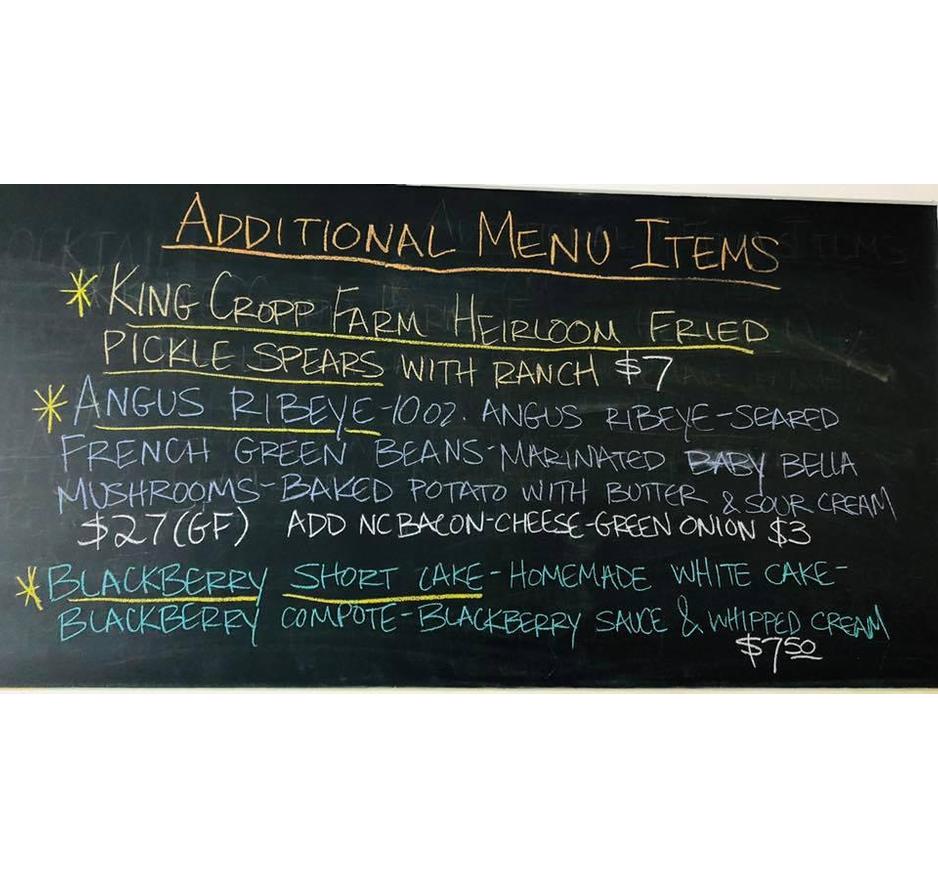 ADDITIONAL MENU ITEMS
* KING CROPP FARM HEIRLOOM FRIED
PICKLE SPEARS WITH RANCH $7
* ANGUS RIBEYE-10 OZ. ANGUS RIBEYE-SEARED
FRENCH GREEN BEANS-MARINATED BABY BELLA
MUSHROOMS-BAKED POTATO WITH BUTTER & SOUR CREAM
$27 (GF) ADD NC BACON-CHEESE-GREEN ONION $3
* BLACKBERRY SHORT CAKE-HOMEMADE WHITE CAKE-
BLACKBERRY COMPOTE-BLACKBERRY SAUCE & WHIPPED CREAM
$750